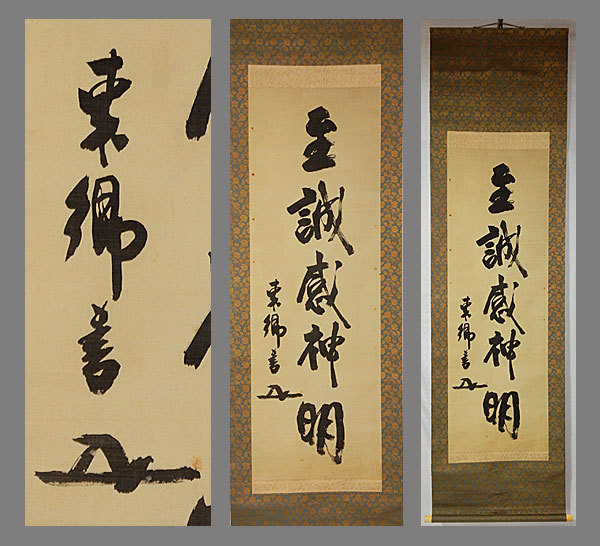 東郷書
至誠感神明
東郷書
至誠感神明
東郷書